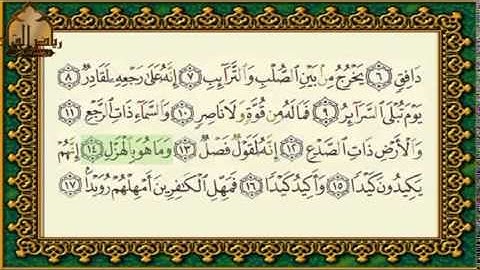 دَافِقٍ ۝٦ يَخْرُجُ مِنۢ بَيْنِ ٱلصُّلْبِ وَٱلتَّرَآئِبِ ۝٧ إِنَّهُۥ عَلَىٰ رَجْعِهِۦ لَقَادِرٌ ۝٨
يَوْمَ تُبْلَى ٱلسَّرَآئِرُ ۝٩ فَمَا لَهُۥ مِن قُوَّةٍ وَلَا نَاصِرٍ ۝١٠ وَٱلسَّمَآءِ ذَاتِ ٱلرَّجْعِ ۝١١
وَٱلْأَرْضِ ذَاتِ ٱلصَّدْعِ ۝١٢ إِنَّهُۥ لَقَوْلٌ فَصْلٌ ۝١٣ وَمَا هُوَ بِٱلْهَزْلِ ۝١٤ إِنَّهُمْ
يَكِيدُونَ كَيْدًا ۝١٥ وَأَكِيدُ كَيْدًا ۝١٦ فَمَهِّلِ ٱلْكَٰفِرِينَ أَمْهِلْهُمْ رُوَيْدًۢا ۝١٧